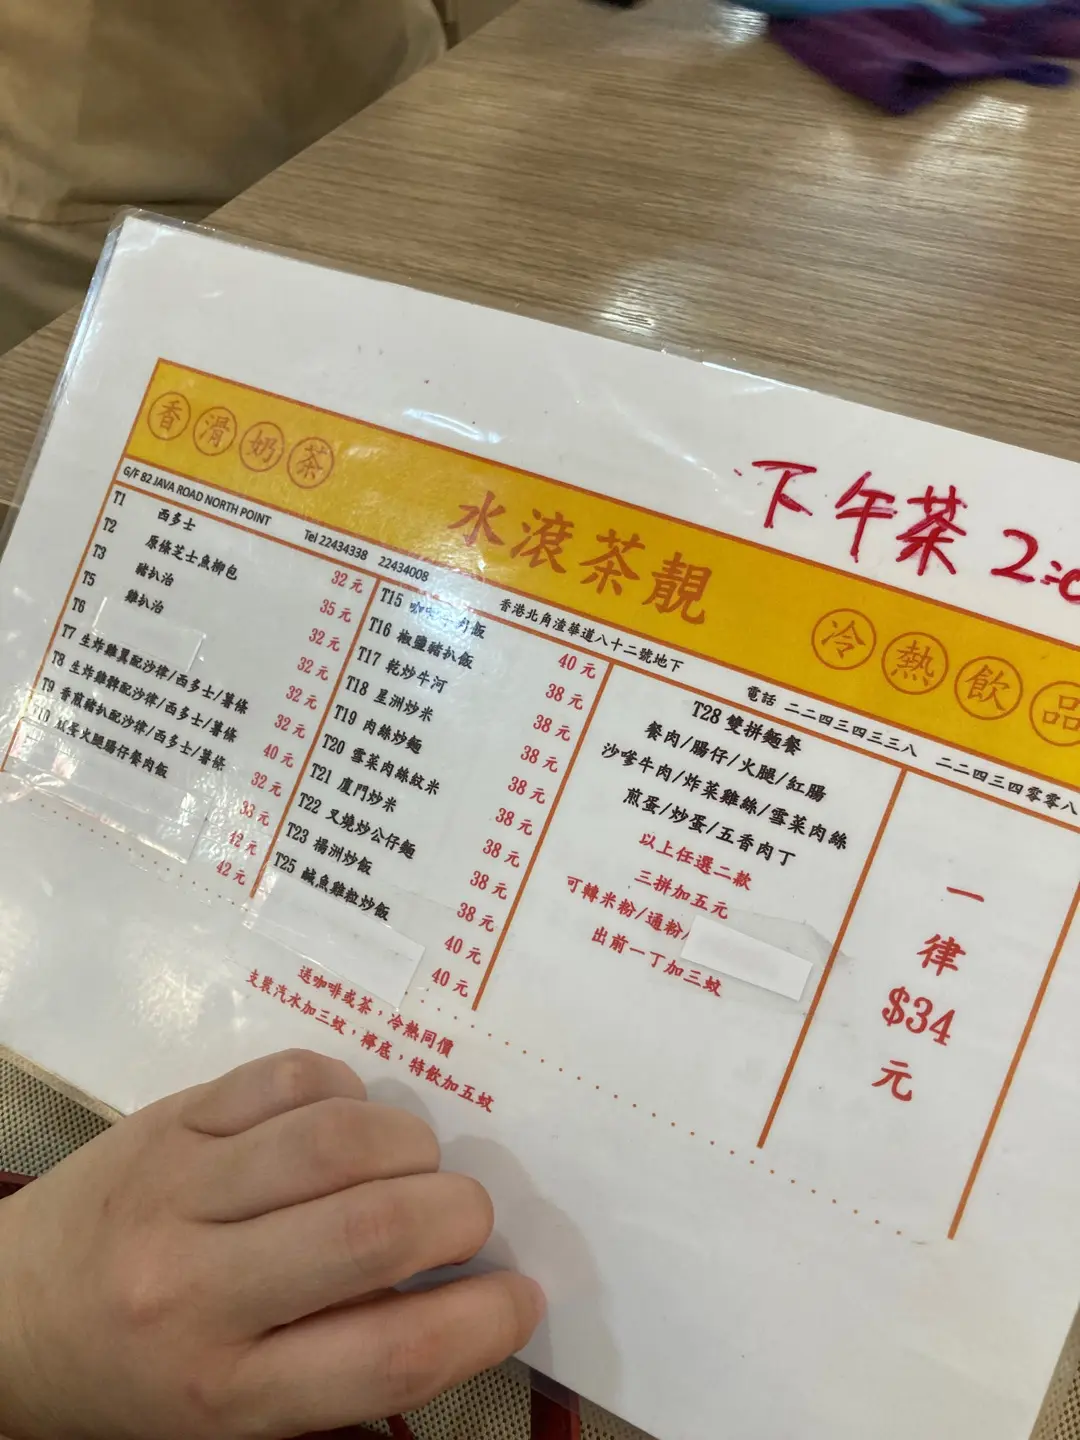 下午茶 2:0
香滑奶茶
水滾茶靚
冷熱飲品
G/F 82 JAVA ROAD NORTH POINT Tel 22434338 22434008
香港北角渣華道八十二號地下 電話 二二四三四三三八 二二四三四零零八
T1 西多士 32元
T2 原條芝士魚柳包 35元
T3 豬扒治 32元
T5 雞扒治 32元
T6 32元
T7 生炸雞翼配沙律/西多士/薯條 32元
T8 生炸雞髀配沙律/西多士/薯條 40元
T9 香煎豬扒配沙律/西多士/薯條 32元
T10 煎蛋火腿腸仔餐肉飯 33元
42元
42元
T15 咖 肉飯 40元
T16 椒鹽豬扒飯 38元
T17 乾炒牛河 38元
T18 星洲炒米 38元
T19 肉絲炒麵 38元
T20 雪菜肉絲紋米 38元
T21 廈門炒米 38元
T22 叉燒炒公仔麵 38元
T23 揚洲炒飯 38元
T25 鹹魚雞粒炒飯 40元
40元
送咖啡或茶，冷熱同價
支裝汽水加三蚊，檸底，特飲加五蚊
T28 雙拼麵餐
餐肉/腸仔/火腿/紅腸
沙爹牛肉/炸菜雞絲/雪菜肉絲
煎蛋/炒蛋/五香肉丁
以上任選二款
三拼加五元
可轉米粉/通粉/
出前一丁加三蚊
一
律
$34
元